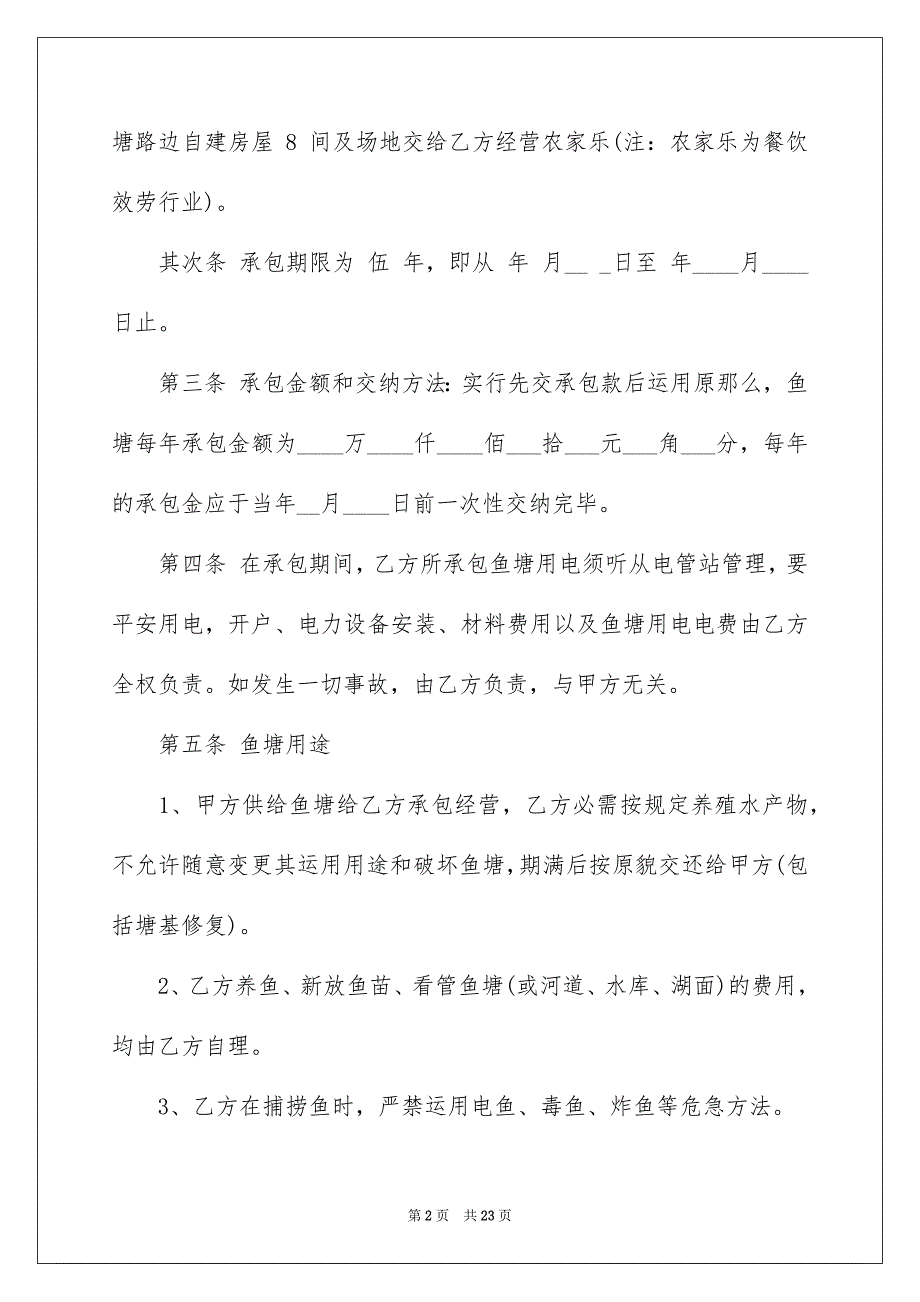 塘路边自建房屋 8 间及场地交给乙方经营农家乐(注：农家乐为餐饮
效劳行业)。
其次条 承包期限为 伍 年，即从 年 月__ _日至 年____月____
日止。
第三条 承包金额和交纳方法：实行先交承包款后运用原那么，鱼
塘每年承包金额为____万____仟____佰___拾___元___角___分，每年
的承包金应于当年__月____日前一次性交纳完毕。
第四条 在承包期间，乙方所承包鱼塘用电须听从电管站管理，要
平安用电，开户、电力设备安装、材料费用以及鱼塘用电电费由乙方
全权负责。如发生一切事故，由乙方负责，与甲方无关。
第五条 鱼塘用途
1、甲方供给鱼塘给乙方承包经营，乙方必需按规定养殖水产物，
不允许随意变更其运用用途和破坏鱼塘，期满后按原貌交还给甲方(包
括塘基修复)。
2、乙方养鱼、新放鱼苗、看管鱼塘(或河道、水库、湖面)的费用，
均由乙方自理。
3、乙方在捕捞鱼时，严禁运用电鱼、毒鱼、炸鱼等危急方法。
第 2 页 共 23 页